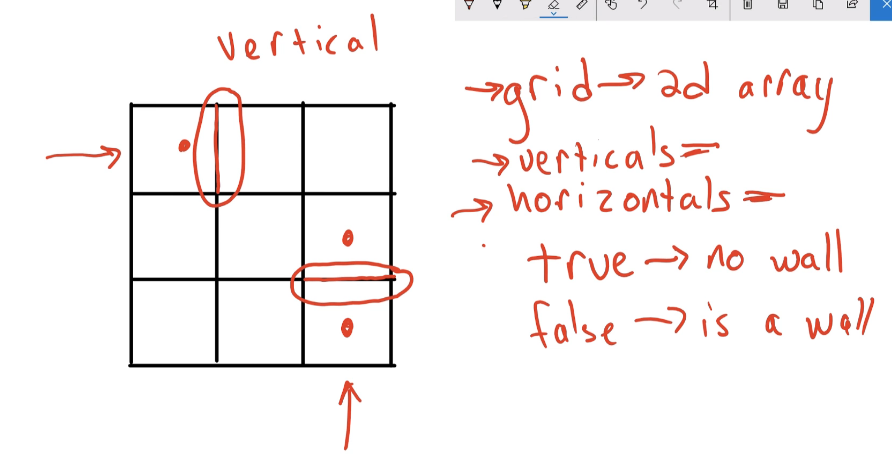 vertical
→grid→ 2d array
→verticals=
→horizontals=
true→ no wall
false→ is a wall